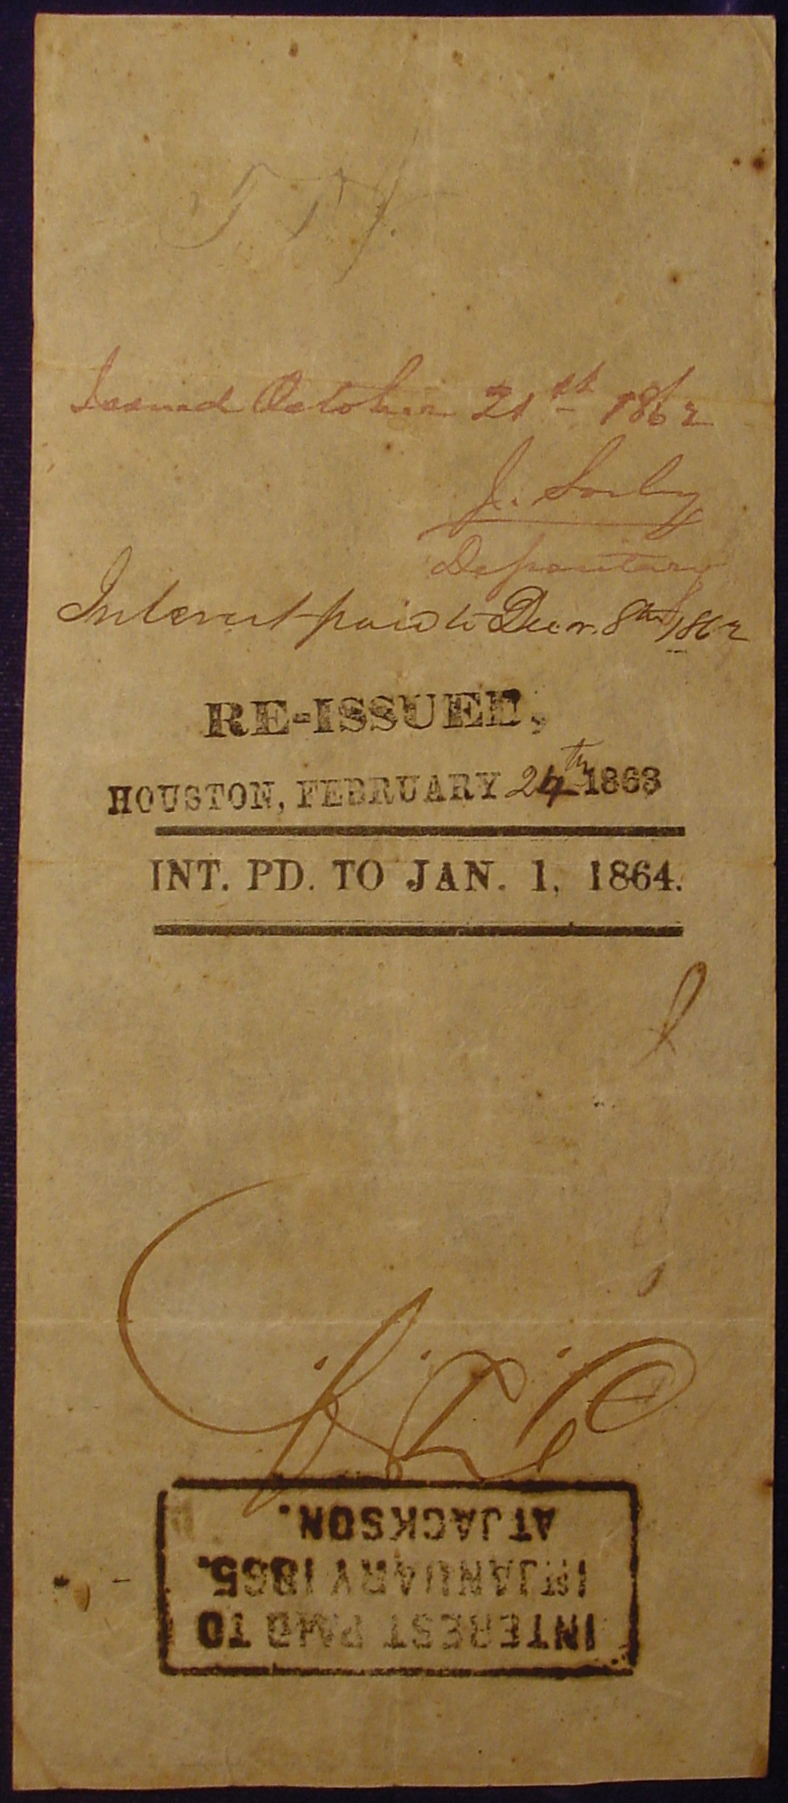 Issued October 21th 1862
J. Sorley
Depositary
Interest paid to Decr. 8th 1862
RE-ISSUED,
HOUSTON, FEBRUARY 24th 1863
INT. PD. TO JAN. 1, 1864.
INTEREST PAID TO
1ST JANUARY 1865.
AT JACKSON.